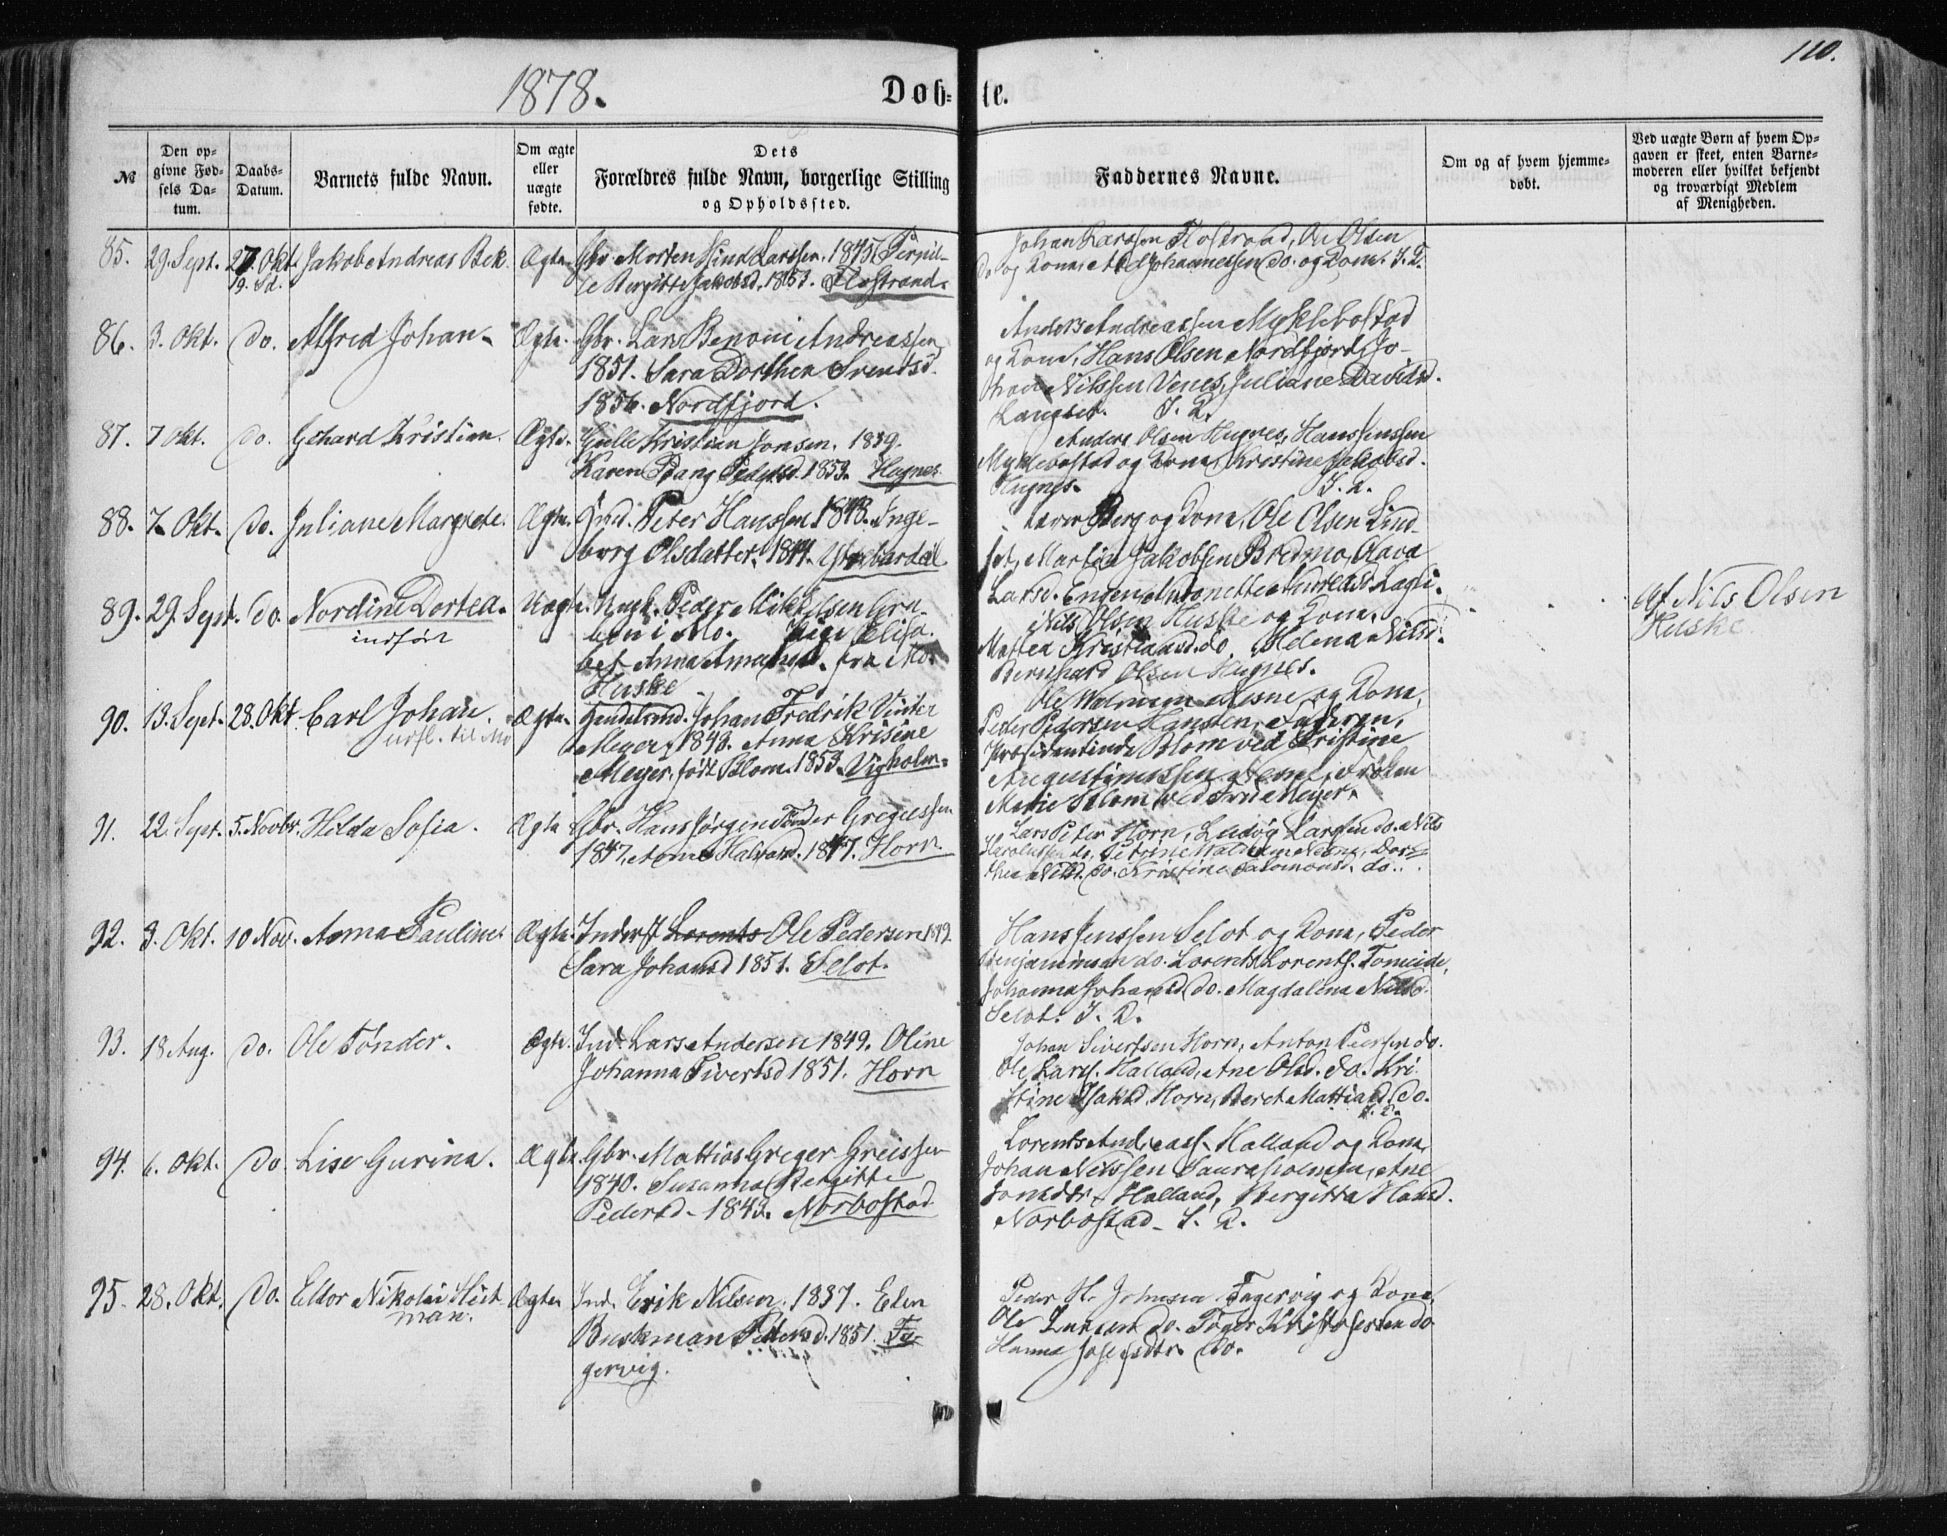 110.
1878.
Døb= te.
№
Den op-
givne Fød-
sels Da-
tum.
Daabs-
Datum.
Barnets fulde Navn.
Om ægte
eller
uægte
fødte.
Dets
Forældres fulde Navn, borgerlige Stilling
og Opholdssted.
Faddernes Navne.
Om og af hvem hjemme-
døbt.
Ved uægte Børn af hvem Op-
gaven er skeet, enten Barne-
moderen eller hvilket bekjendt
og troværdigt Medlem
af Menigheden.
85. 29. Sept. 27. Okt. Jakob Andreas Bek. Ægte
19. Sd.
Gbr. Morten Hind Larssen. 1845. Pernil-
le Bergitte Jakobsd. 1853. Flostrand.
Johan Larssen Flostrand, Ole Olsen
do og Kone, Johannessen do. og Kone. I. D.
86. 3. Okt. do. Alfred Johan. Ægte.
Gbr. Lars Benoni Andreassen
1851. Sara Dorthea Svendsd.
1856. Nordfjord.
Anders Andreassen Myklebostad
og Kone, Hans Olsen Nordfjord, Jo-
Nilssen Venes, Juliane Davidsd.
Langset. I. D.
87. 7 Okt. do. Gerhard Kristian. Ægte.
Kristian Jonsen. 1839.
Karen Bang Pedersd. 1853. Hugnes
Anders Olsen Hugnes, Hans Jenssen
Myklebostad og Kone, Kristine Jakobsd.
Hugnes. I. D.
88. 7. Okt. do. Juliane Margrete. Ægte.
Ind. Peter Hanssen 1848. Inge-
borg Olsdatter. 1844.
Berg og Kone, Ole Olsen Lind-
set, Martea Jakobsen Bredmo,
Larsd. Engen, Antonette Andreasd.
89. 29. Sept. do. Nordine Dortea. Uægte
indført
Ungk. Peder Mikkelsen Gru-
ben i Mo. Pige Elisa-
bet Anna fra Mo.
Huske
Nils Olsen Huske og Kone,
Martea Kristiansd. do, Helena Nilsd.
Bernhard Olsen Hugnes.
af Nils Olsen
Huske.
90. 13. Sept. 28. Okt. Carl Johan. Ægte.
udfl. til Mo
Handelsmd. Johan Fredrik Vinter
Meyer, 1848. Anna Krisine
Meyer, født Blom. 1853. Vigholm.
Ole Walnum Nesne og Kone,
Peder Pedersen Hansten, Faderen,
Præsidentinde Blom ved Kristine
Augustinussen Nesne, Frøken
Marie Blom ved Fru Meyer.
91. 22. Sept. 5. Novbr. Hilda Sofia. Ægte
Gbr. Hans Jørgen Tønder Gregussen
1847. Halvorsd. 1847. Horn.
Lars Peter Horn, Ludvig Larssen do. Nils
do, Petrine Walnum Nesne, Dor-
thea Nilsd. do. Kristine Salomonsd. do.
92. 3. Okt. 10 Nov. Anna Pauline. Ægte.
Inderst Lorents Ole Pedersen 1842
Sara Johansd 1851. Selot.
Hans Jenssen Selot og Kone, Peder
Benjaminsen do. Lorents Lorents.
Johanna Johansd do. Magdalena Nilsd.
Selot. I. D.
93. 18 Aug. do. Ole Tønder. Ægte.
Ind. Lars Andersen 1849. Oline
Johanna Sivertsd 1851. Horn
Johan Sivertsen Horn, Anton do.
Ole Larss. Halland, Ane Olsd. do. Kri-
stine Isaksd Horn, Beret Mattiasd. do.
I. D.
94. 6. Okt. do. Lise Gurina. Ægte
Gbr. Mattias Greger Greissen
1840. Susanna Bergitte
Pedersd. 1843. Norbostad
Lorents Andreass. Halland og Kone,
Johan Nilssen Sauraholmen, Ane
Halland, Bergitta Hansd.
Norbostad. I. D.
95. 28. Okt. do. Eldor Nikolai Heit- Ægte
man.
Ind. Erik Nilsen. 1837. Elen
Buskman Pedersd. 1851. Fa-
gervig.
Peder H. Johnsen Fagervig og Kone,
Ole do. Toger do
Hanna Josefsdtr. do.